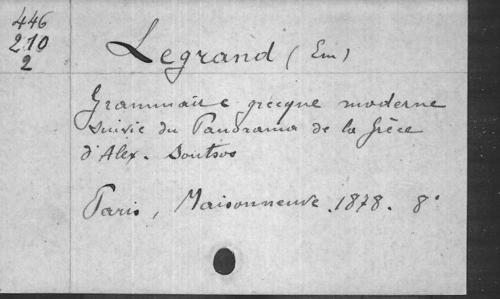 446
210
2
Legrand (Em)
Grammaire grecque moderne
suivie du Panorama de la Grèce
d'Alex. Soutsos
Paris, Maisonneuve. 1878. 8°